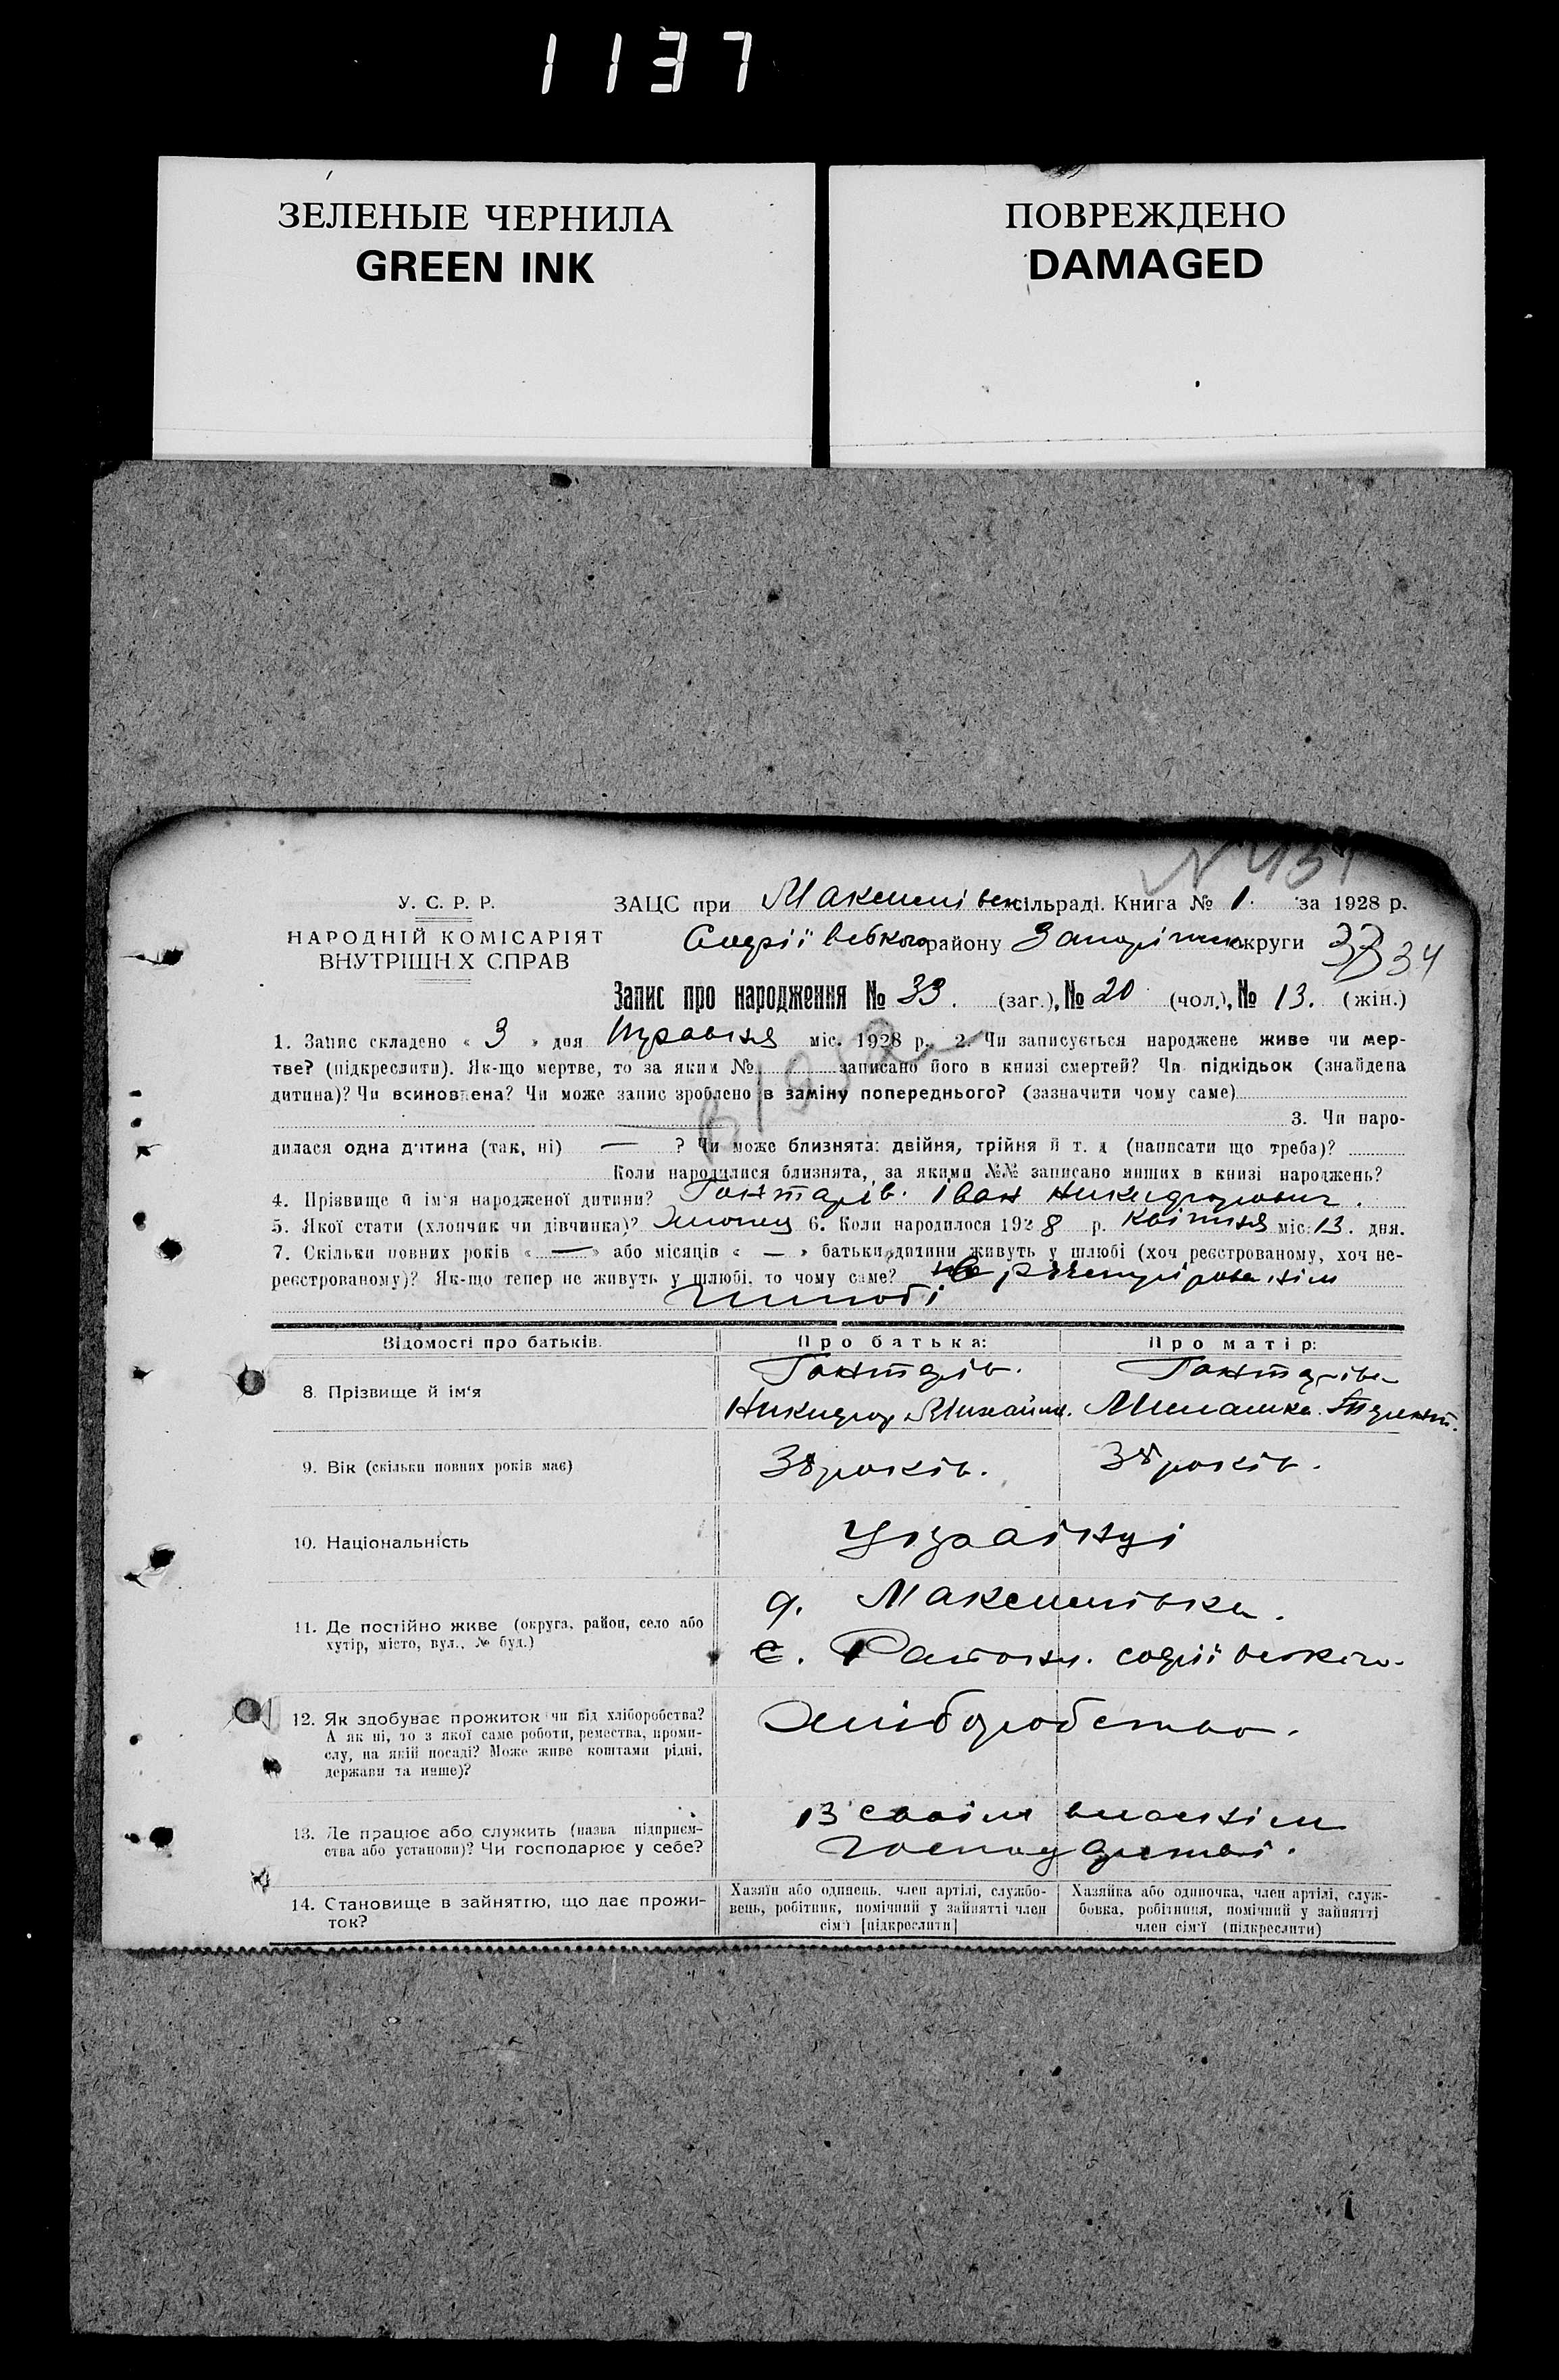 1137
ЗЕЛЕНЫЕ ЧЕРНИЛА
GREEN INK
ПОВРЕЖДЕНО
DAMAGED
У. С. Р. Р.
НАРОДНІЙ КОМІСАРІЯТ
ВНУТРІШН Х СПРАВ
ЗАЦС при сільраді. Книга № 1. за 1928 р.
району округи 34
Запис про народження № 33. (заг.), № 20 (чол.), № 13. (жін.)
1. Запис складено « 3 » дня травня міс. 1928 р. 2. Чи записується народжене живе чи мер-
тве? (підкреслити). Як-що мертве, то за яким № записано його в книзі смертей? Чи підкідьок (знайдена
дитина)? Чи всиновлена? Чи може запис зроблено в заміну попереднього? (зазначити чому саме)
3. Чи наро-
дилася одна дитина (так, ні) — ? Чи може близнята: двійня, трійня й т. д (написати що треба)?
Коли народилися близнята, за якими №№ записано инших в книзі народжень?
4. Прізвище й ім'я народженої дитини? Гонтарів. Іван Никифорович.
5. Якої стати (хлопчик чи дівчинка)? Хлопец 6. Коли народилося 1928 р. Квітня міс. 13. дня.
7. Скільки повних років « — » або місяців « — » батьки дитини живуть у шлюбі (хоч реєстрованому, хоч не-
реєстрованому)? Як-що тепер не живуть у шлюбі, то чому саме?
Відомості про батьків. Про батька: Про матір:
8. Прізвище й ім'я Гонтарів. Гонтарівa
Никифор Михайл. Милашка
9. Вік (скільки повних років має) 38 років. 38 років.
10. Національність Українці
11. Де постійно живе (округа, район, село або
хутір, місто, вул., № буд.)
12. Як здобуває прожиток чи від хліборобства? Хліборобство.
А як ні, то з якої саме роботи, ремества, проми-
слу, на якій посаді? Може живе коштами рідні,
держави та инше)?
13. Де працює або служить (назва підприєм-
ства або установи)? Чи господарює у себе?
із своїм власнім
господарстві.
14. Становище в зайняттю, що дає прожи-
ток?
Хазяїн або одинець, член артілі, службо-
вець, робітник, помічний у зайнятті член
сім'ї [підкреслити]
Хазяйка або одиночка, член артілі, служ-
бовка, робітниця, помічний у зайнятті
член сім'ї (підкреслити)